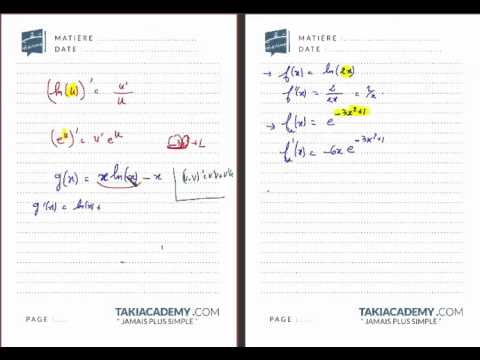 MATIÈRE :
DATE :
(ln(u))' = u'/u
(e^u)' = u' e^u
+1
g(x) = x ln(x) - x
(u.v)' = u'v + v'u
g'(x) = ln(x) +
PAGE :
TAKIACADEMY.COM
" JAMAIS PLUS SIMPLE "
MATIÈRE :
DATE :
→ f(x) = ln(2x)
f'(x) = 2/2x = 1/x
→ h(x) = e^-3x²+1
h'(x) = -6x e^-3x²+1
PAGE :
TAKIACADEMY.COM
" JAMAIS PLUS SIMPLE "